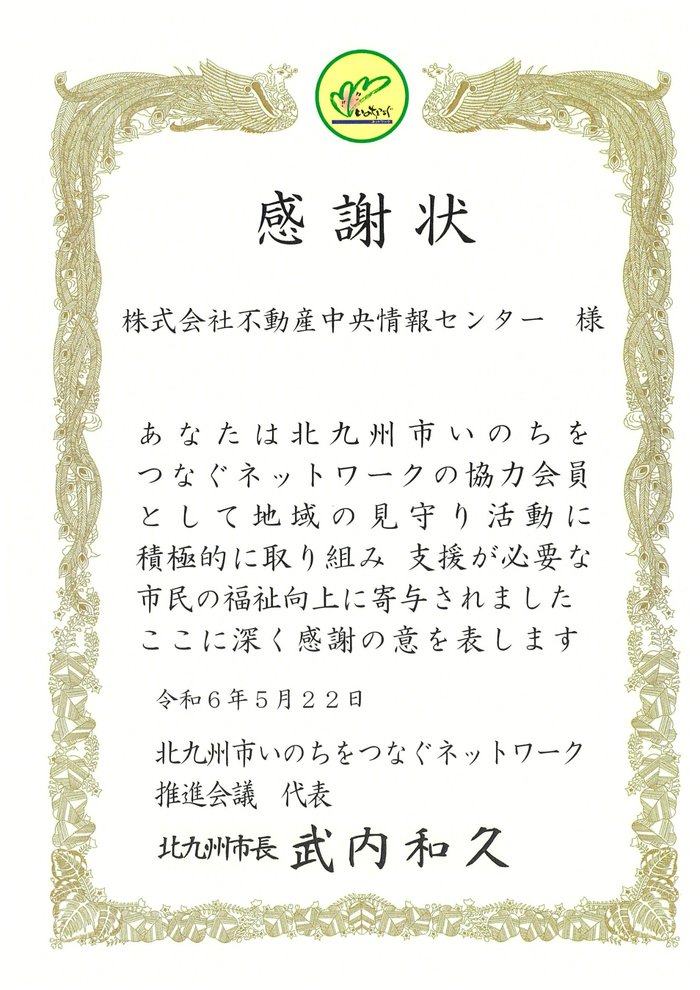 いのちつなぐ
ネットワーク
感謝状
株式会社不動産中央情報センター　様
あなたは北九州市いのちを
つなぐネットワークの協力会員
として地域の見守り活動に
積極的に取り組み 支援が必要な
市民の福祉向上に寄与されました
ここに深く感謝の意を表します
令和６年５月２２日
北九州市いのちをつなぐネットワーク
推進会議　代表
北九州市長 武内和久